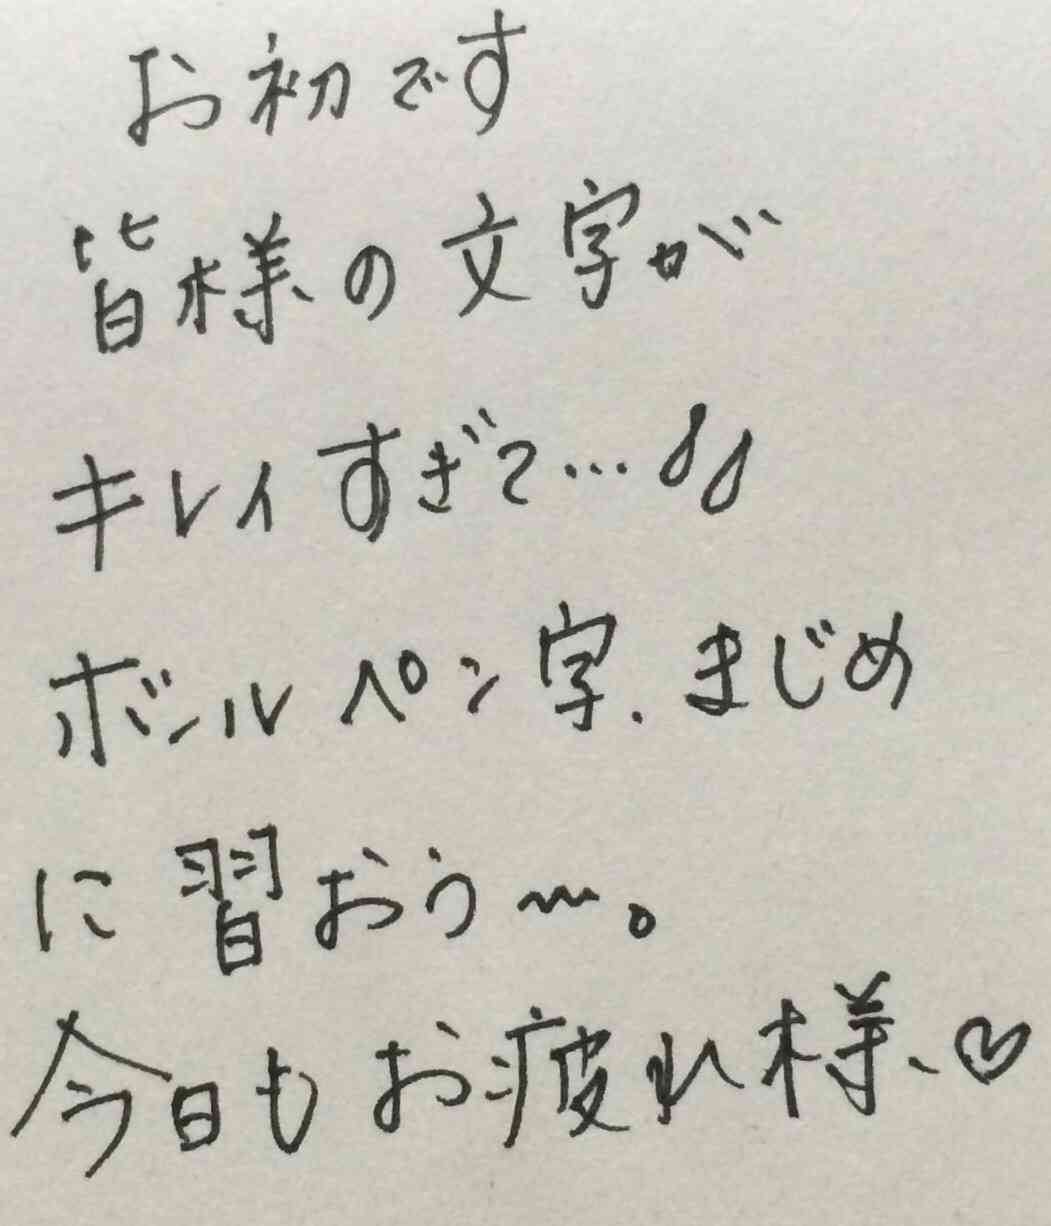 お初です
皆様の文字が
キレイすぎて…
ボールペン字、まじめ
に習おう〜。
今日もお疲れ様、♡